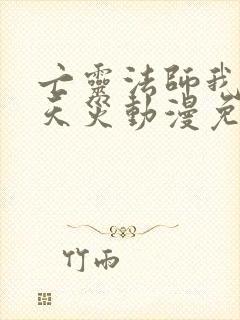 亡靈法師我
天災動漫免
竹雨